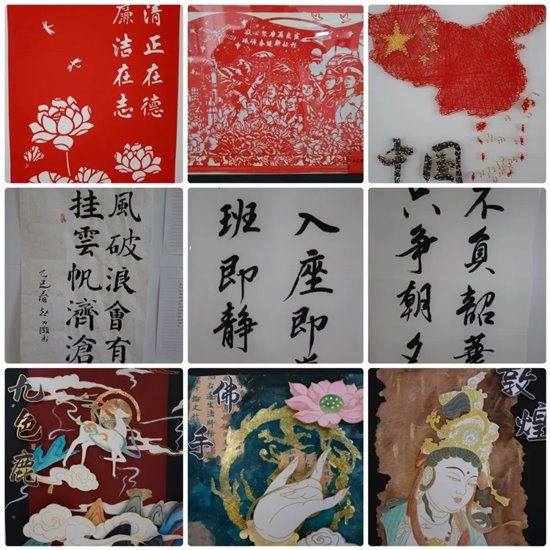 清正在德
廉洁在志
中国
風破浪會有
挂雲帆濟滄
乙巳春
入座即
班即静
不負韶華
只争朝夕
九色鹿
佛手
敦煌